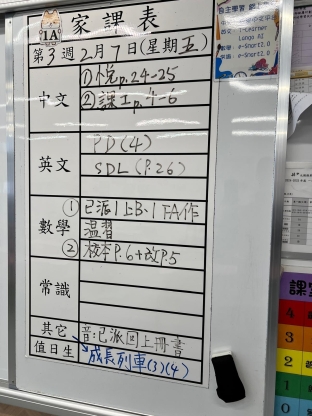 1A
家課表
第3週2月7日(星期五)
中文
①悅p.24-25
②課士p.4-6
英文
PD(4)
SDL(P.26)
數學
①已派1上B-1 FA作
溫習
②校本P.6+改P.5
常識
其它
音:已派回上冊書
值日生
成長列車(3)(4)
自主學習
e-Smart2.0
e-Smart2.0
課室
4
3
2
1
0